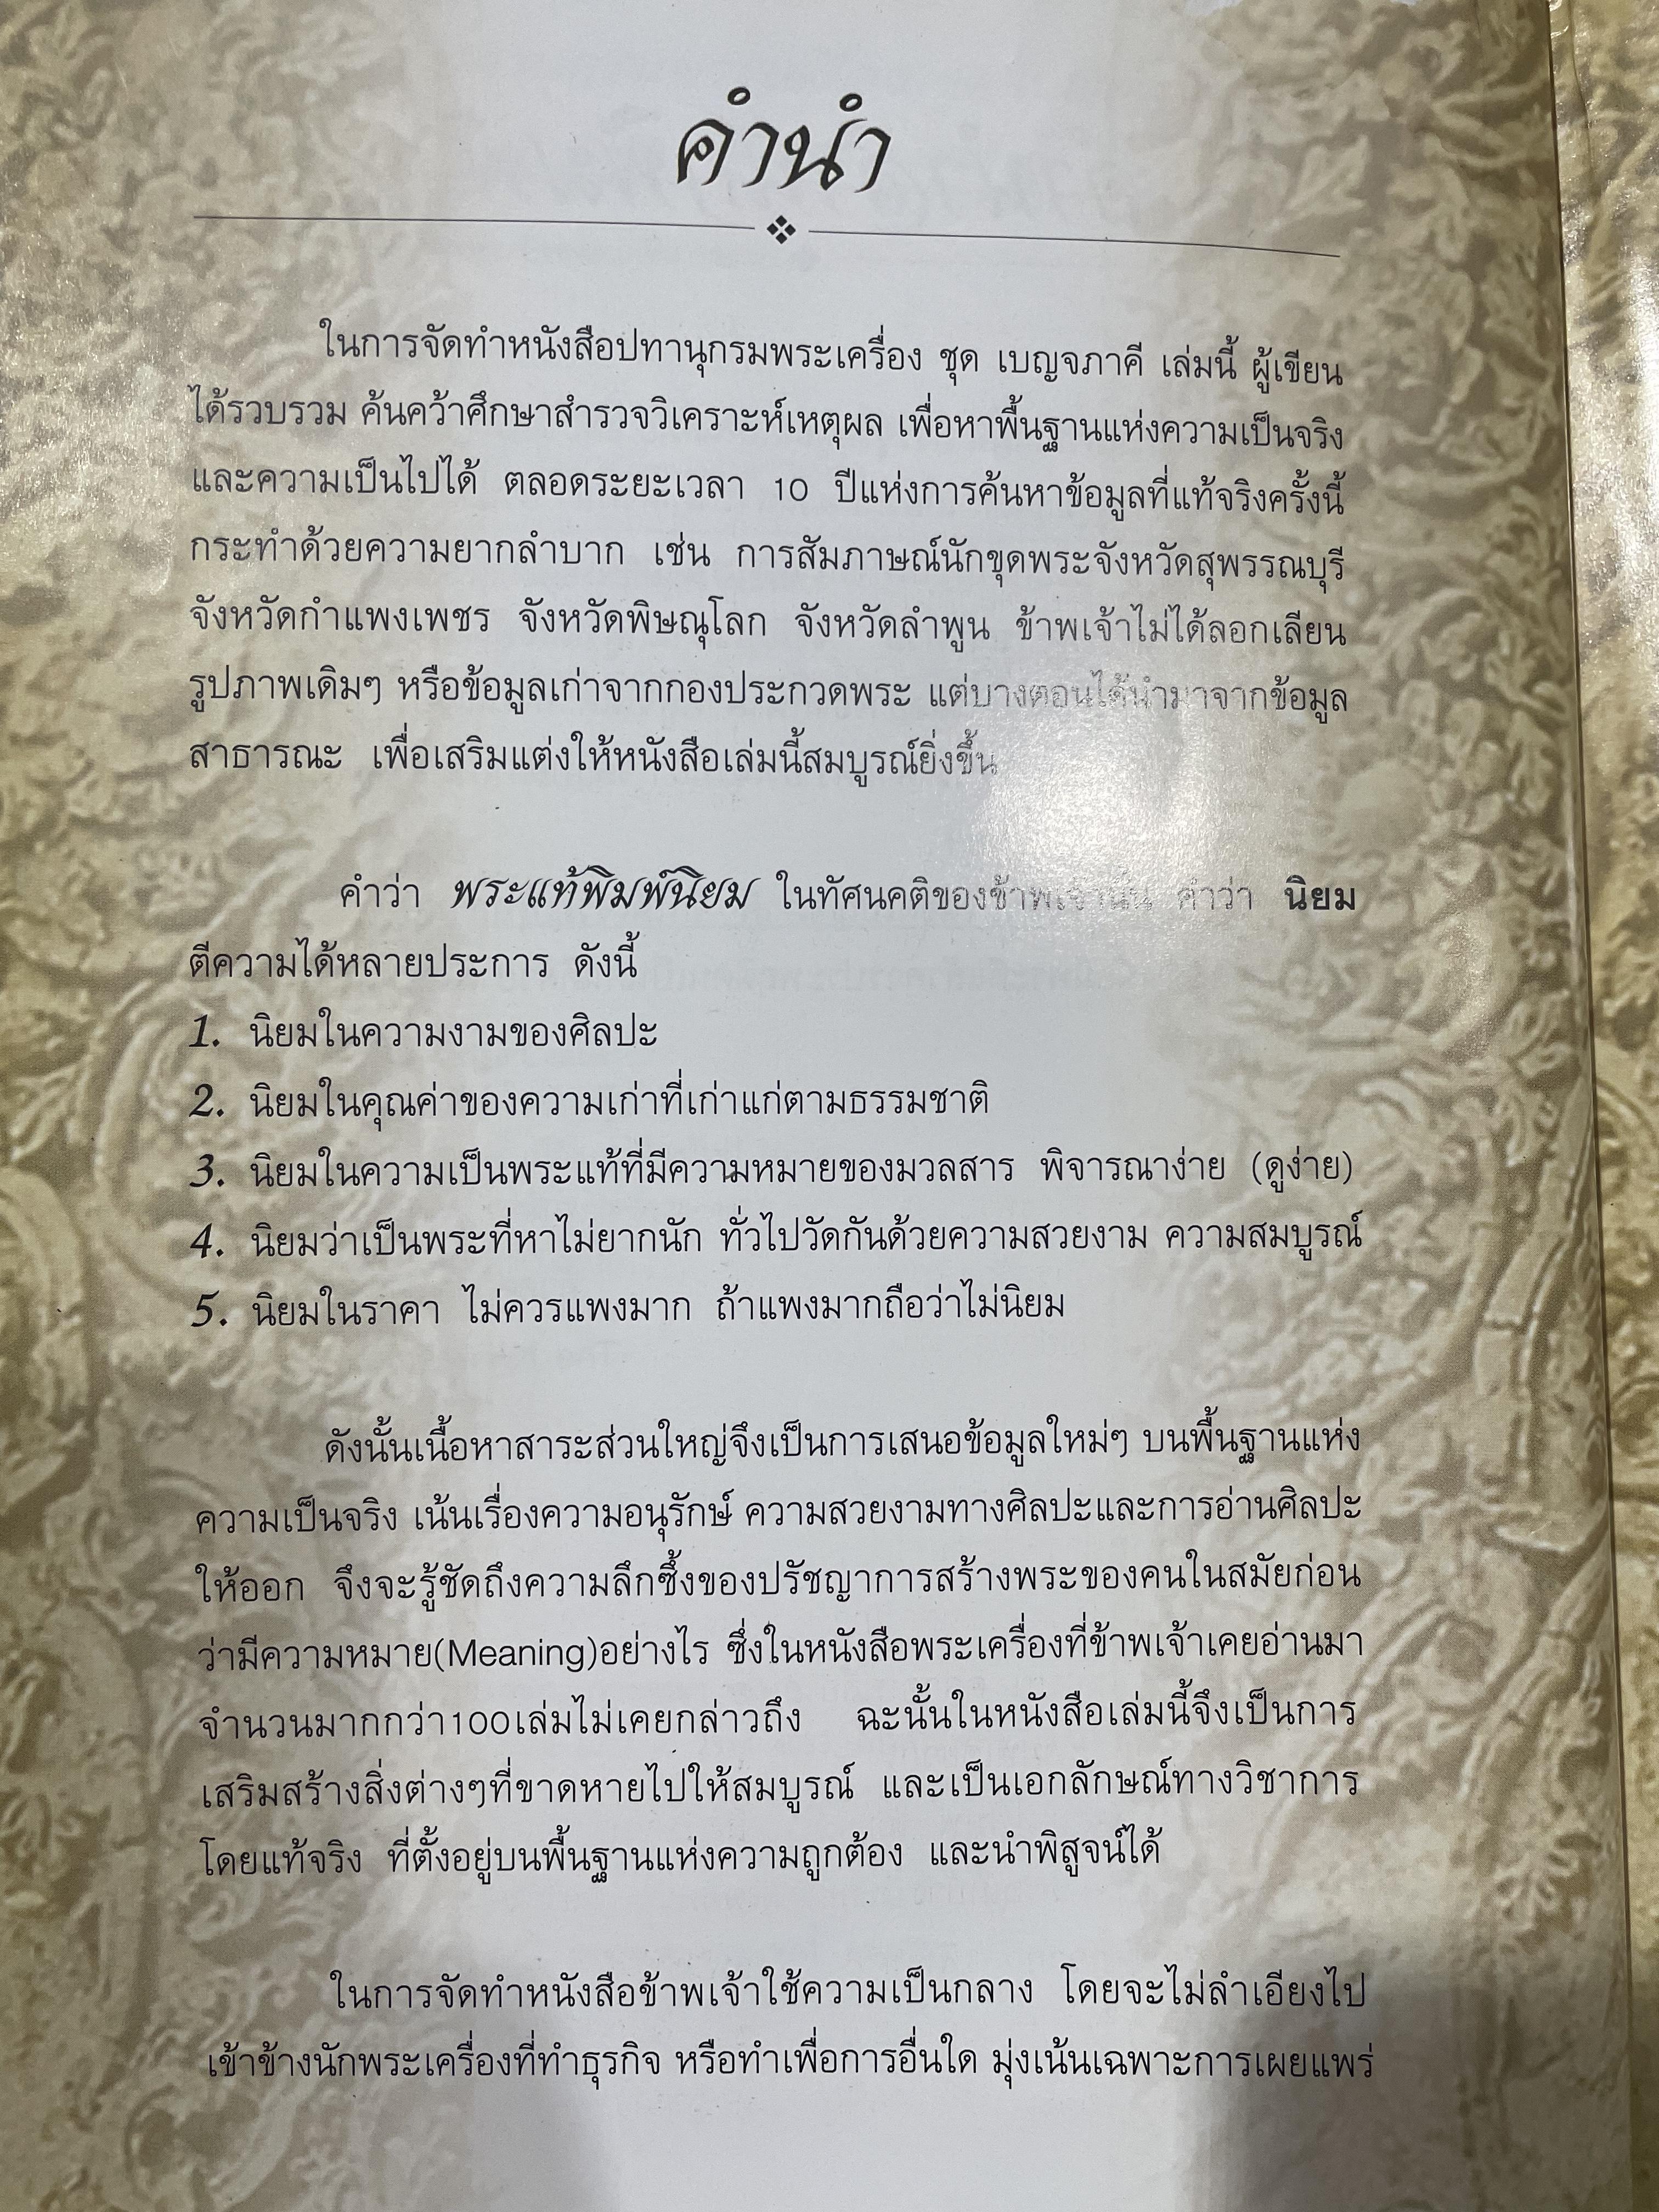 คำนำ
ในการจัดทำหนังสือปทานุกรมพระเครื่อง ชุด เบญจภาคี เล่มนี้ ผู้เขียน
ได้รวบรวม ค้นคว้าศึกษาสำรวจวิเคราะห์เหตุผล เพื่อหาพื้นฐานแห่งความเป็นจริง
และความเป็นไปได้ ตลอดระยะเวลา 10 ปีแห่งการค้นหาข้อมูลที่แท้จริงครั้งนี้
กระทำด้วยความยากลำบาก เช่น การสัมภาษณ์นักขุดพระจังหวัดสุพรรณบุรี
จังหวัดกำแพงเพชร จังหวัดพิษณุโลก จังหวัดลำพูน ข้าพเจ้าไม่ได้ลอกเลียน
รูปภาพเดิมๆ หรือข้อมูลเก่าจากกองประกวดพระ แต่บางตอนได้นำมาจากข้อมูล
สาธารณะ เพื่อเสริมแต่งให้หนังสือเล่มนี้สมบูรณ์ยิ่งขึ้น
คำว่า พระแท้พิมพ์นิยม ในทัศนคติของข้าพเจ้านั้น คำว่า นิยม
ตีความได้หลายประการ ดังนี้
1. นิยมในความงามของศิลปะ
2. นิยมในคุณค่าของความเก่าที่เก่าแก่ตามธรรมชาติ
3. นิยมในความเป็นพระแท้ที่มีความหมายของมวลสาร พิจารณาง่าย (ดูง่าย)
4. นิยมว่าเป็นพระที่หาไม่ยากนัก ทั่วไปวัดกันด้วยความสวยงาม ความสมบูรณ์
5. นิยมในราคา ไม่ควรแพงมาก ถ้าแพงมากถือว่าไม่นิยม
ดังนั้นเนื้อหาสาระส่วนใหญ่จึงเป็นการเสนอข้อมูลใหม่ๆ บนพื้นฐานแห่ง
ความเป็นจริง เน้นเรื่องความอนุรักษ์ ความสวยงามทางศิลปะและการอ่านศิลปะ
ให้ออก จึงจะรู้ชัดถึงความลึกซึ้งของปรัชญาการสร้างพระของคนในสมัยก่อน
ว่ามีความหมาย(Meaning)อย่างไร ซึ่งในหนังสือพระเครื่องที่ข้าพเจ้าเคยอ่านมา
จำนวนมากกว่า100เล่มไม่เคยกล่าวถึง ฉะนั้นในหนังสือเล่มนี้จึงเป็นการ
เสริมสร้างสิ่งต่างๆที่ขาดหายไปให้สมบูรณ์ และเป็นเอกลักษณ์ทางวิชาการ
โดยแท้จริง ที่ตั้งอยู่บนพื้นฐานแห่งความถูกต้อง และนำพิสูจน์ได้
ในการจัดทำหนังสือข้าพเจ้าใช้ความเป็นกลาง โดยจะไม่ลำเอียงไป
เข้าข้างนักพระเครื่องที่ทำธุรกิจ หรือทำเพื่อการอื่นใด มุ่งเน้นเฉพาะการเผยแพร่